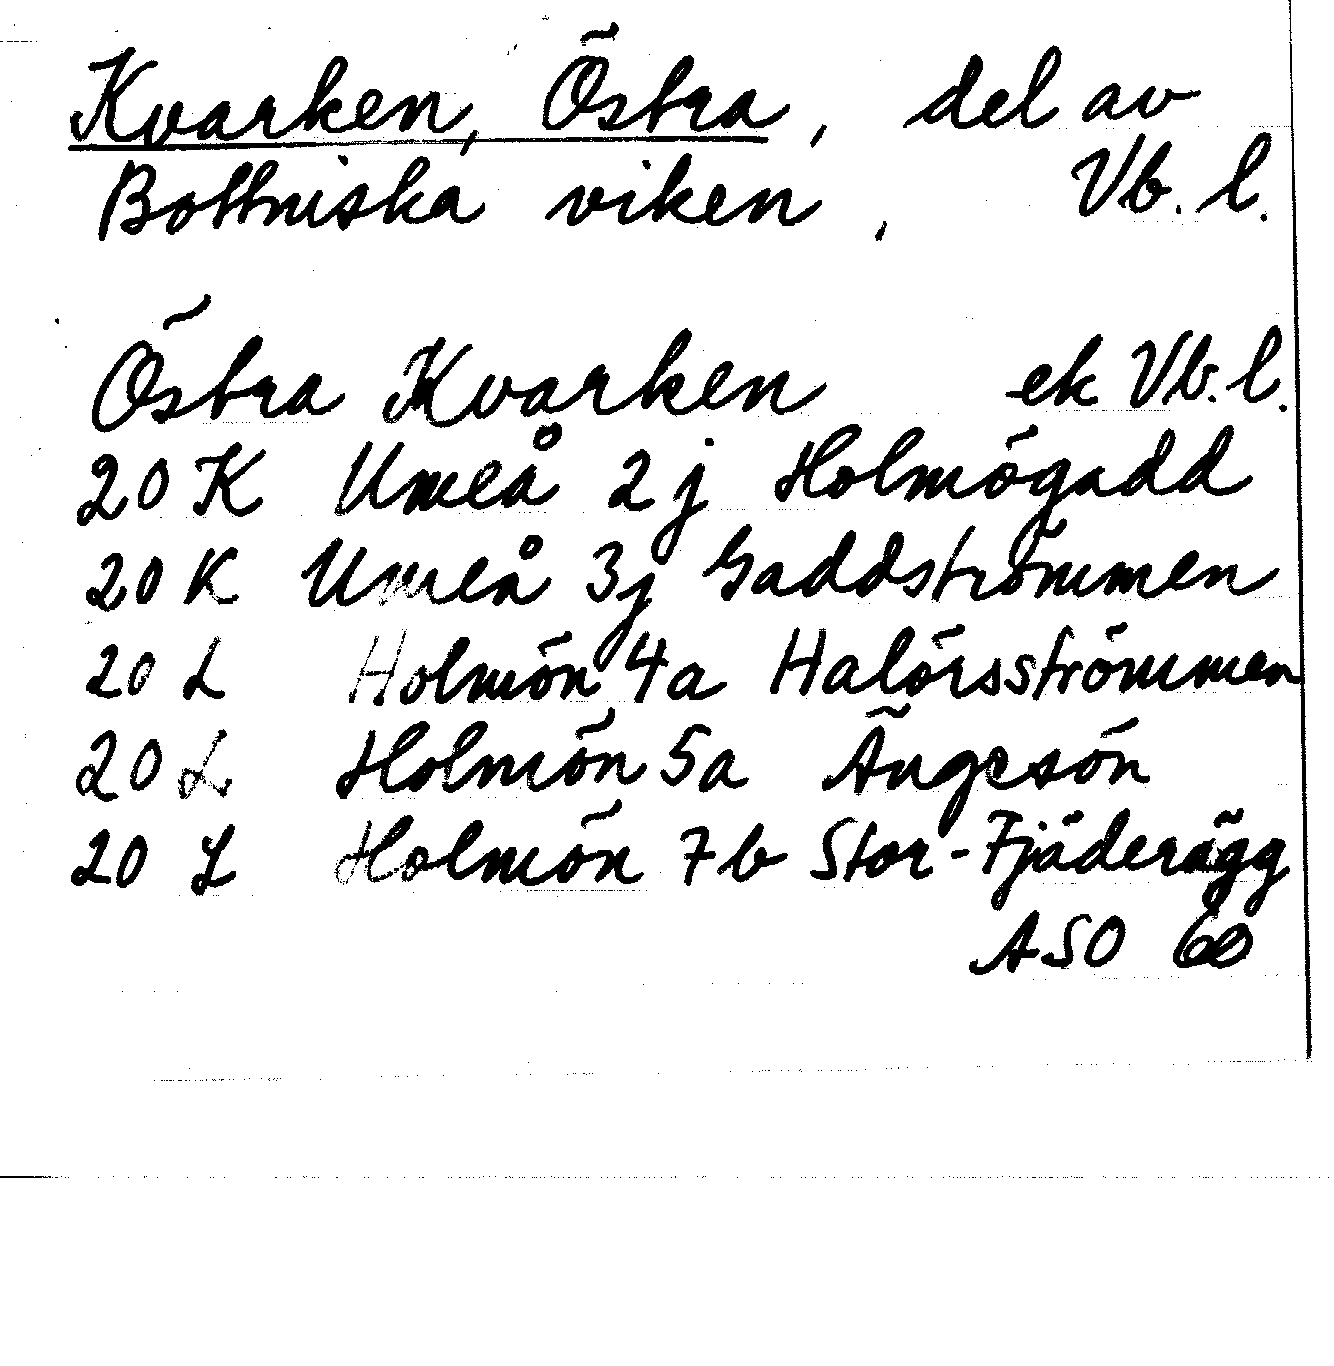 Kvarken, Östra, del av
Bottniska viken, Vb. l.
Östra Kvarken ek Vb. l.
20 K Umeå 2 j Holmögadd
20 K Umeå 3j Gaddströmmen
20 L Holmön 4a Halörsströmmen
20 L Holmön 5a Ängesön
20 L Holmön 7b Stor-Fjäderägg
ASO 60